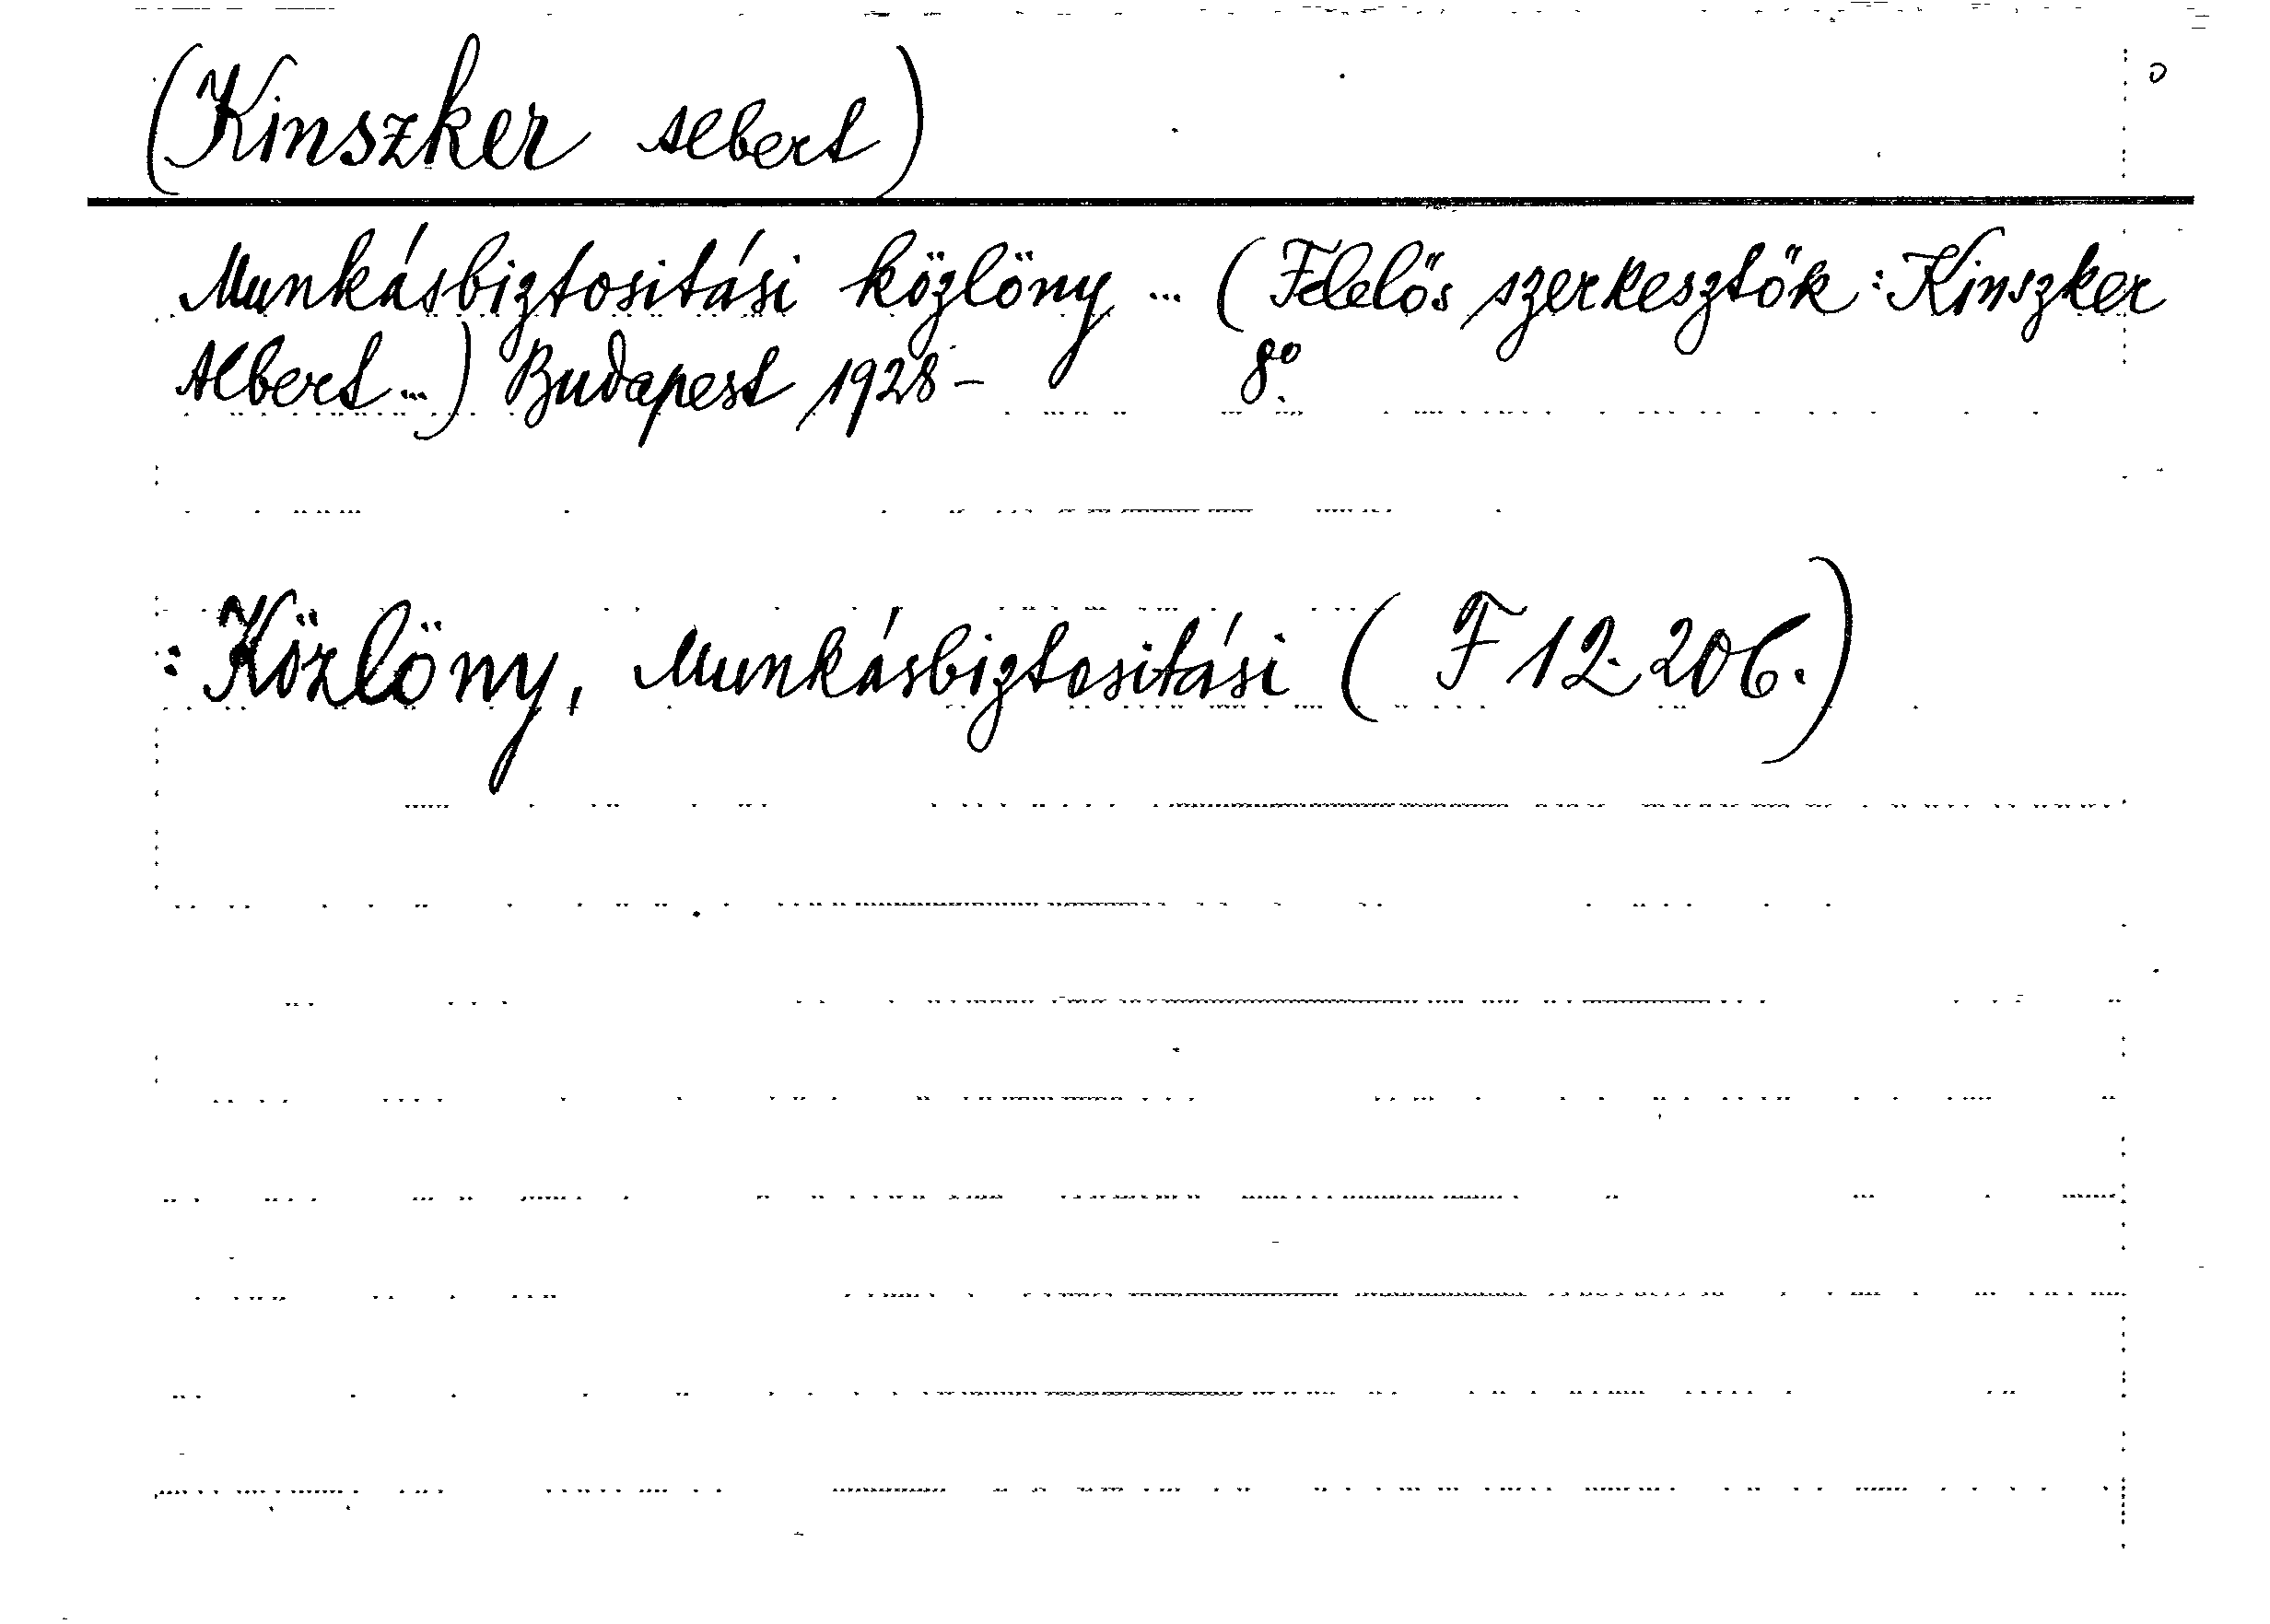 (Kinszker Albert)
Munkásbiztositási közlöny ... (Felelős szerkesztők: Kinszker
Albert ...) Budapest, 1928- 8°.
: Közlöny, Munkásbiztositási (F 12.206.)